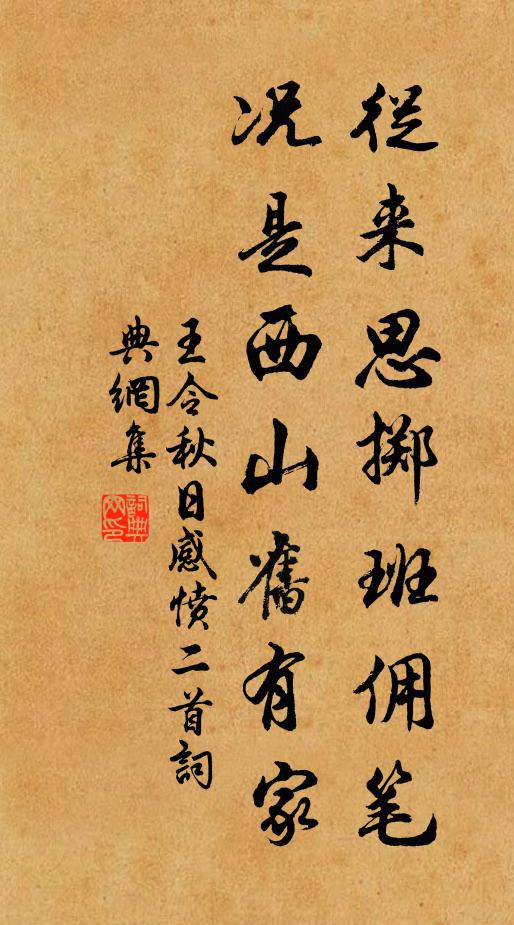 從来思掷班佣笔
况是西山舊有家
王令秋日感愤二首詞
典網集
詞典網印